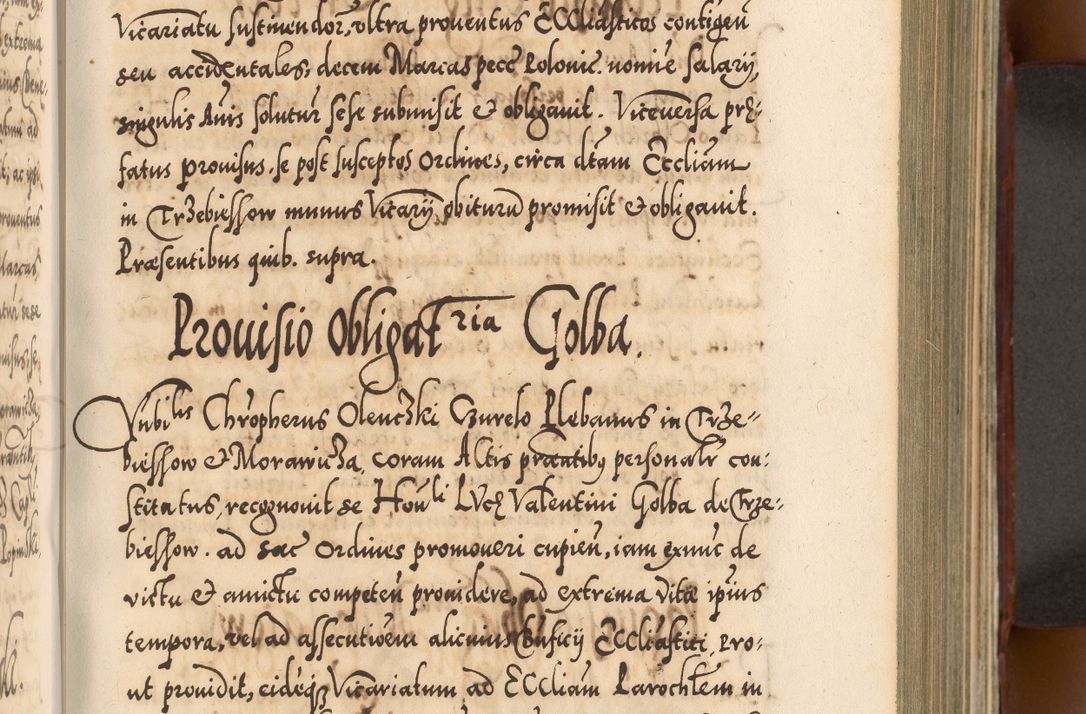 Vicariatu sustinendor, ultra proventus Eccliasticos contigen̄
seu accidentales; decem Marcas pecc Polonic. nomīe salary,
singulis Anīs solutur sese submisit & obligavit. Viceversa præ-
fatus provisus. se post susceptos Ordines, circa dtam Eccliam
in Trzebiessow munus Vicary obiturū promisit & obligavit.
Præsentibus quib. supra.
Provisio Obligatria Golba.
Nubilis Chropherus Olenczki Czurelo Plebanus in Trze-
biessow & Morawicza, coram Actis præntibus personalr con:
stitutus, recognovit se Honli Valentini Golba de Trze-
biessow. ad sac Ordines promoveri cupien̄, iam exnūc de
victu & amictu competen̄ providere, ad extrema vitæ ipius
tempora, vel ad assecutioem alicuius Bnficij Eccliastici, Pro-
ut providit, eideqz Vicariatum ad Eccliam Parochlem in